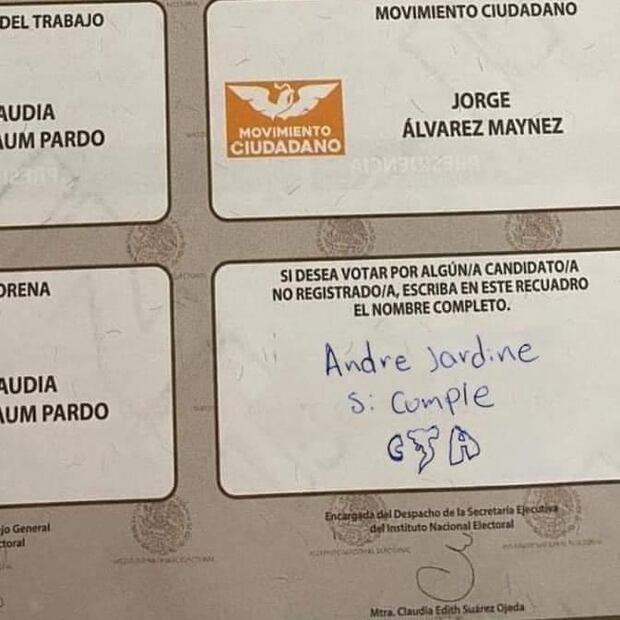 DEL TRABAJO
AUDIA
AUM PARDO
MOVIMIENTO CIUDADANO
MOVIMIENTO
CIUDADANO
JORGE
ÁLVAREZ MAYNEZ
ORENA
AUDIA
AUM PARDO
SI DESEA VOTAR POR ALGÚN/A CANDIDATO/A
NO REGISTRADO/A, ESCRIBA EN ESTE RECUADRO
EL NOMBRE COMPLETO.
Andre Jardine
Si Cumple
jo General
ctoral
Encargada del Despacho de la Secretaría Ejecutiva
del Instituto Nacional Electoral
Mtra. Claudia Edith Suárez Ojeda